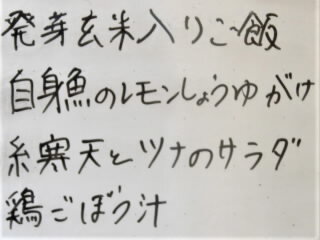 発芽玄米入りご飯
自身魚のレモンしょうゆがけ
糸寒天とツナのサラダ
鶏ごぼう汁